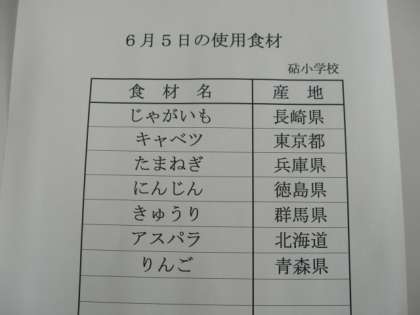 6月5日の使用食材
砧小学校
食 材 名 産 地
じゃがいも 長崎県
キャベツ 東京都
たまねぎ 兵庫県
にんじん 徳島県
きゅうり 群馬県
アスパラ 北海道
りんご 青森県